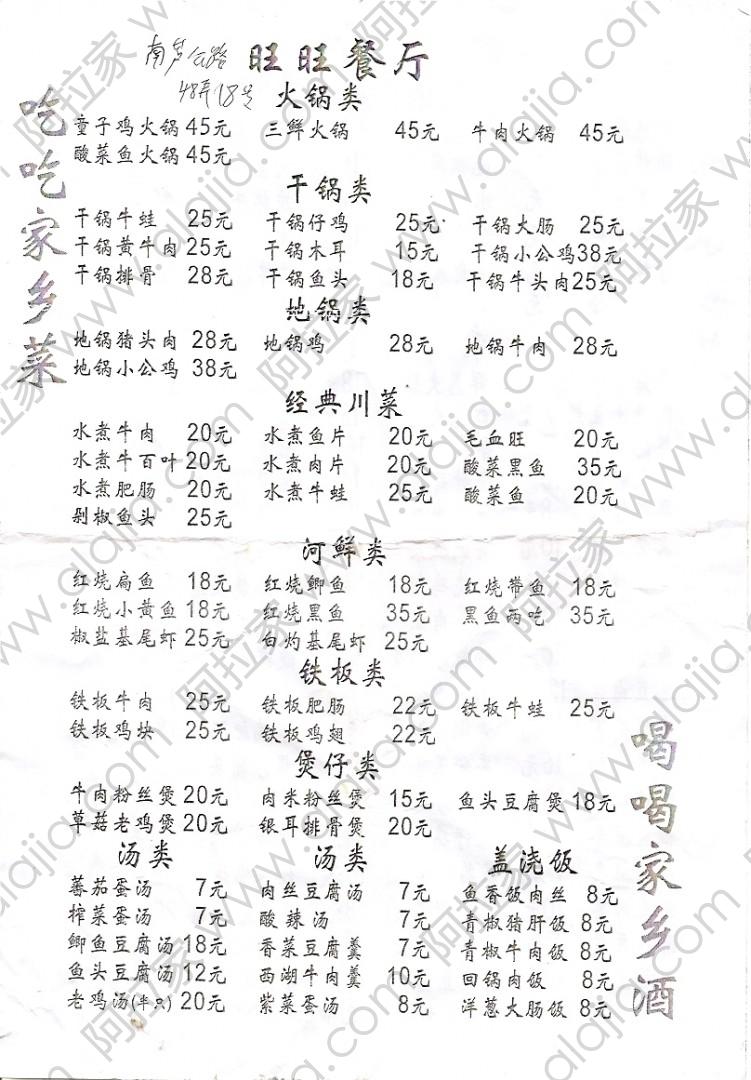 南芦公路 旺旺餐厅
48弄18号
火锅类
童子鸡火锅 45元 三鲜火锅 45元 牛肉火锅 45元
酸菜鱼火锅 45元
干锅类
干锅牛蛙 25元 干锅仔鸡 25元 干锅大肠 25元
干锅黄牛肉 25元 干锅木耳 15元 干锅小公鸡 38元
干锅排骨 28元 干锅鱼头 18元 干锅牛头肉 25元
地锅类
地锅猪头肉 28元 地锅鸡 28元 地锅牛肉 28元
地锅小公鸡 38元
经典川菜
水煮牛肉 20元 水煮鱼片 20元 毛血旺 20元
水煮牛百叶 20元 水煮肉片 20元 酸菜黑鱼 35元
水煮肥肠 20元 水煮牛蛙 25元 酸菜鱼 20元
剁椒鱼头 25元
河鲜类
红烧扁鱼 18元 红烧鲫鱼 18元 红烧带鱼 18元
红烧小黄鱼 18元 红烧黑鱼 35元 黑鱼两吃 35元
椒盐基尾虾 25元 白灼基尾虾 25元
铁板类
铁板牛肉 25元 铁板肥肠 22元 铁板牛蛙 25元
铁板鸡块 25元 铁板鸡翅 22元
煲仔类
牛肉粉丝煲 20元 肉米粉丝煲 15元 鱼头豆腐煲 18元
草菇老鸡煲 20元 银耳排骨煲 20元
汤类 汤类 盖浇饭
蕃茄蛋汤 7元 肉丝豆腐汤 7元 鱼香饭肉丝 8元
榨菜蛋汤 7元 酸辣汤 7元 青椒猪肝饭 8元
鲫鱼豆腐汤 18元 香菜豆腐羹 7元 青椒牛肉饭 8元
鱼头豆腐汤 12元 西湖牛肉羹 10元 回锅肉饭 8元
老鸡汤(半只) 20元 紫菜蛋汤 8元 洋葱大肠饭 8元
吃吃家乡菜
喝喝家乡酒
阿拉家 www.alajia.com